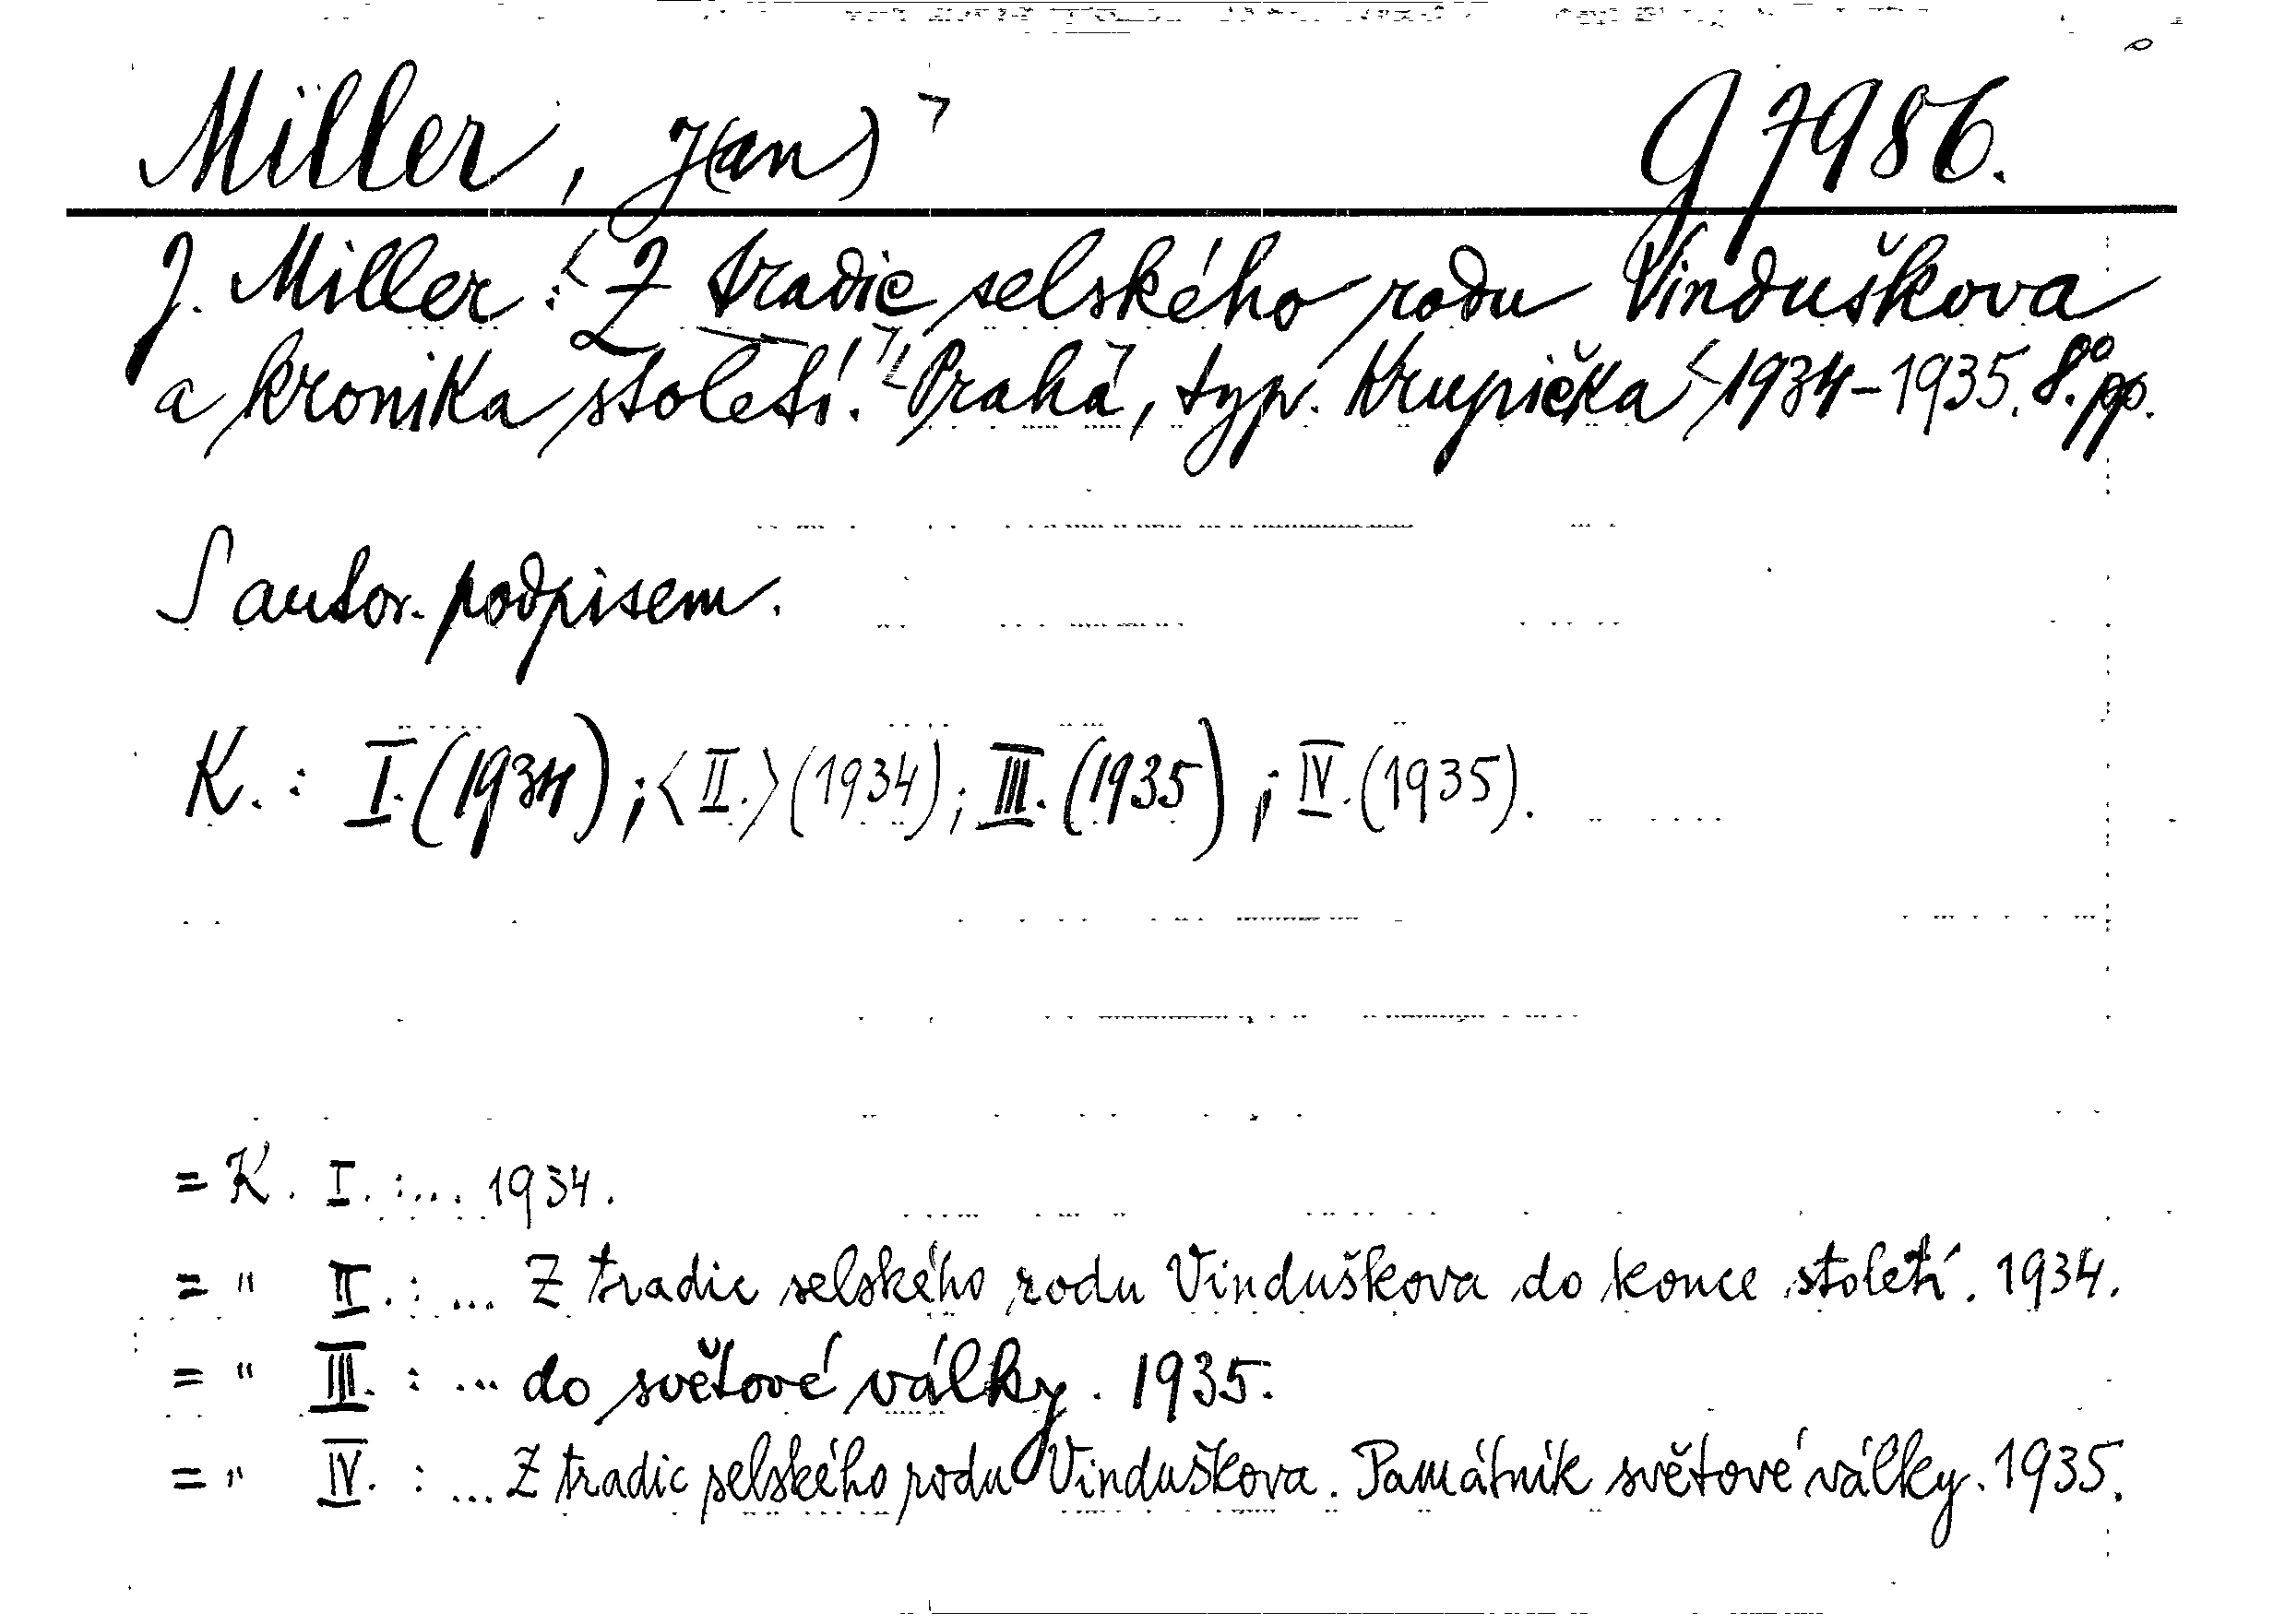 Miller, J(an) G 7986.
J. Miller: Z tradic selského rodu Vinduškova
a kronika století. Praha, typ. Krupička 1934-1935. 8.° pp.
S autor. podpisem.
K. : I. (1934) ; <II.> (1934) ; III. (1935) ; IV. (1935).
= K. I. : ... 1934.
= " II. : ... Z tradic selského rodu Vinduškova do konce století. 1934.
= " III. : ... do světové války. 1935.
= " IV. : ... Z tradic selského rodu Vinduškova. Památník světové války. 1935.